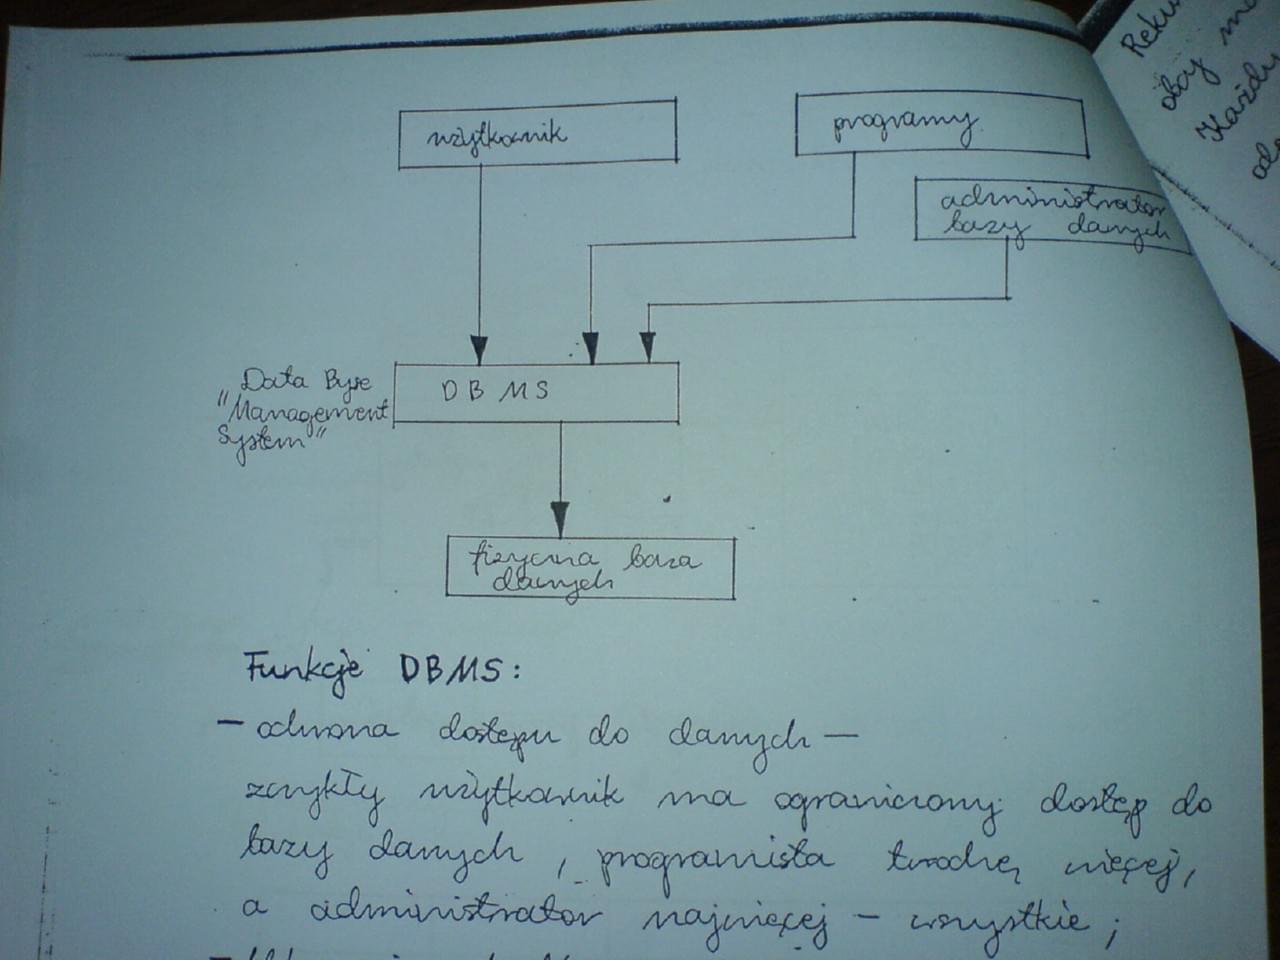 użytkownik
programy
administrator
bazy danych
Data Byse
"Management
System"
DBMS
fizyczna baza
danych
Funkcje DBMS:
- ochrona dostępu do danych -
zwykły użytkownik ma ograniczony dostęp do
bazy danych, programista trochę więcej,
a administrator najwięcej - wszystkie;
oby
Każdy